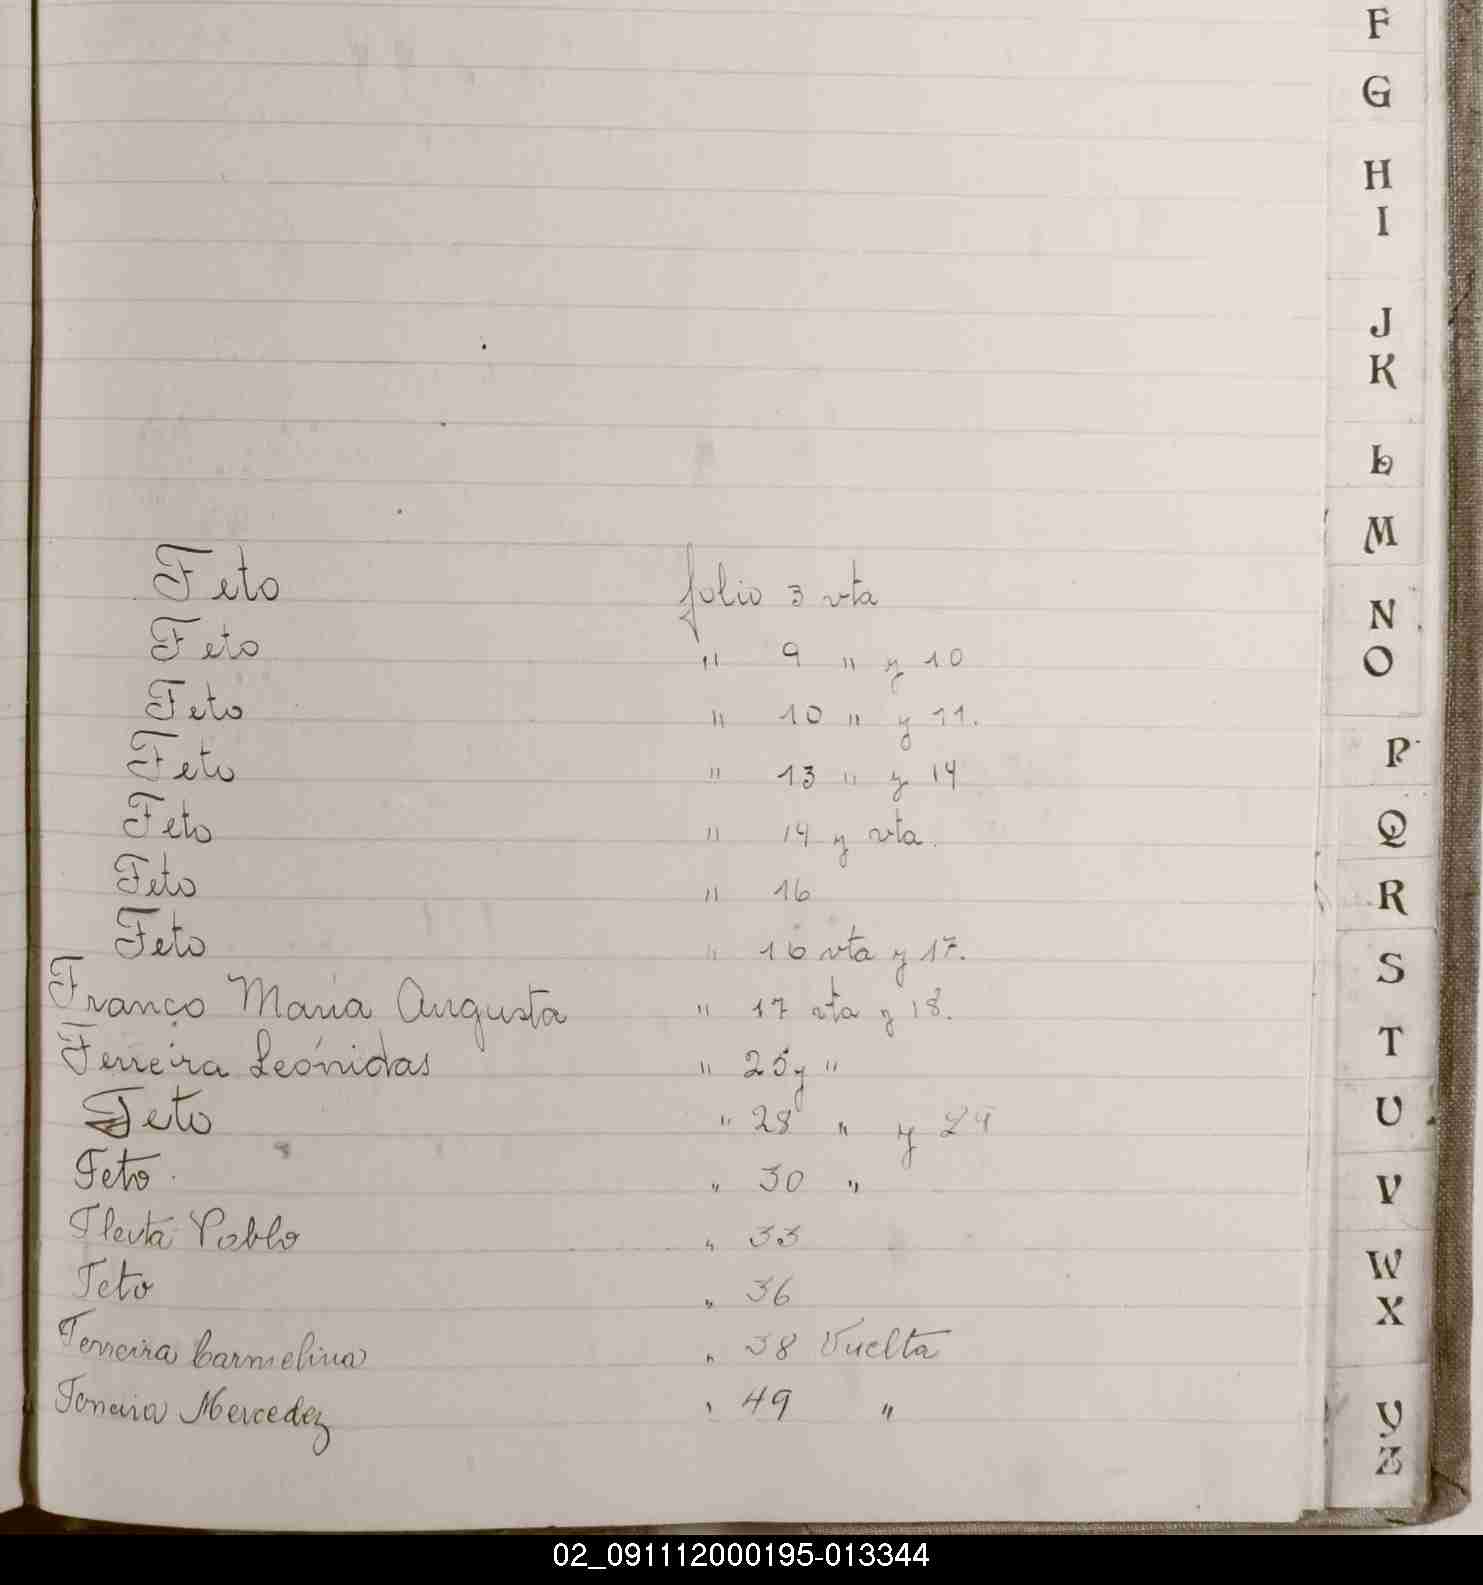 Feto folio 3 vta
Feto " 9 " y 10
Feto " 10 " y 11.
Feto " 13 " y 14
Feto " 14 y vta.
Feto " 16
Feto " 16 vta y 17.
Franco Maria Augusta " 17 vta y 18.
Ferreira Leónidas " 25 y "
Feto " 28 " y 29
Feto " 30 "
Pablo " 33
Feto " 36
Ferreira Carmelina " 38 Vuelta
Ferreira Mercedez " 49 "
F
G
H
I
J
K
L
M
N
O
P
Q
R
S
T
U
V
W
X
Y
Z
02_091112000195-013344